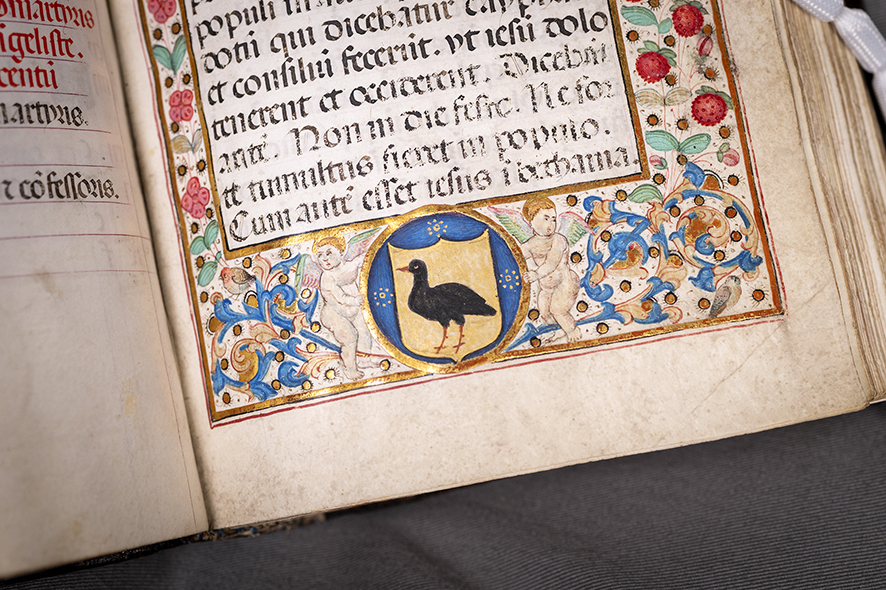 martyris
geliste.
centii
martyris.
cōfessoris.
populi in
dotū qui dicebatur cayph
et consiliū fecerūt. vt iesū dolo
tenerent et occiderent. Dicebāt
autē. Non in die festo. Ne for
te tumultus fieret in populo.
Cum autē esset iesus i bethania.